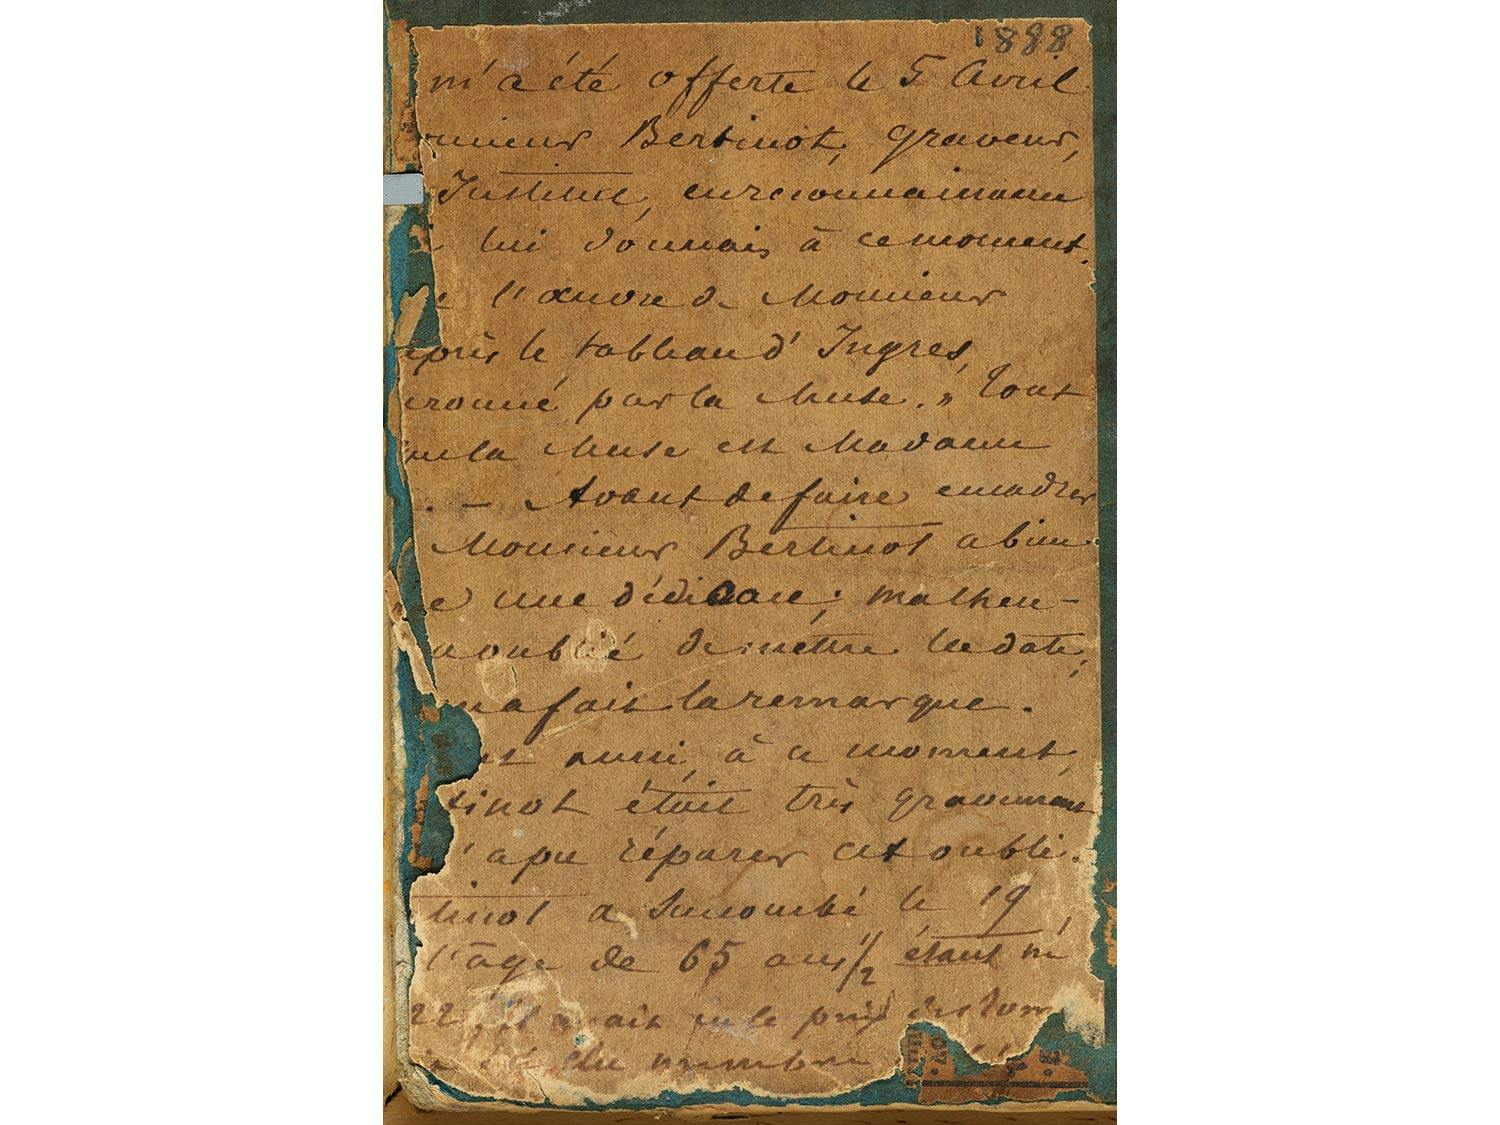 1888
m'a été offerte le 5 Avril
onsieur Bertinot, graveur,
Institut, en reconnaissance
lui donnais à ce moment.
l'œuvre de Monsieur
près le tableau d'Ingres,
ronné par la Muse." Tout
la Muse est Madame
. — Avant de faire encadrer
Monsieur Bertinot a bien
une dédicace; malheu-
a oublié de mettre la date,
m'a fait la remarque.
aussi, à ce moment,
tinot était très gravement
n'a pu réparer cet oubli.
tinot a succombé le 19
l'âge de 65 ans 1/2 étant né
22, il avait eu le prix de Rom
élu membre